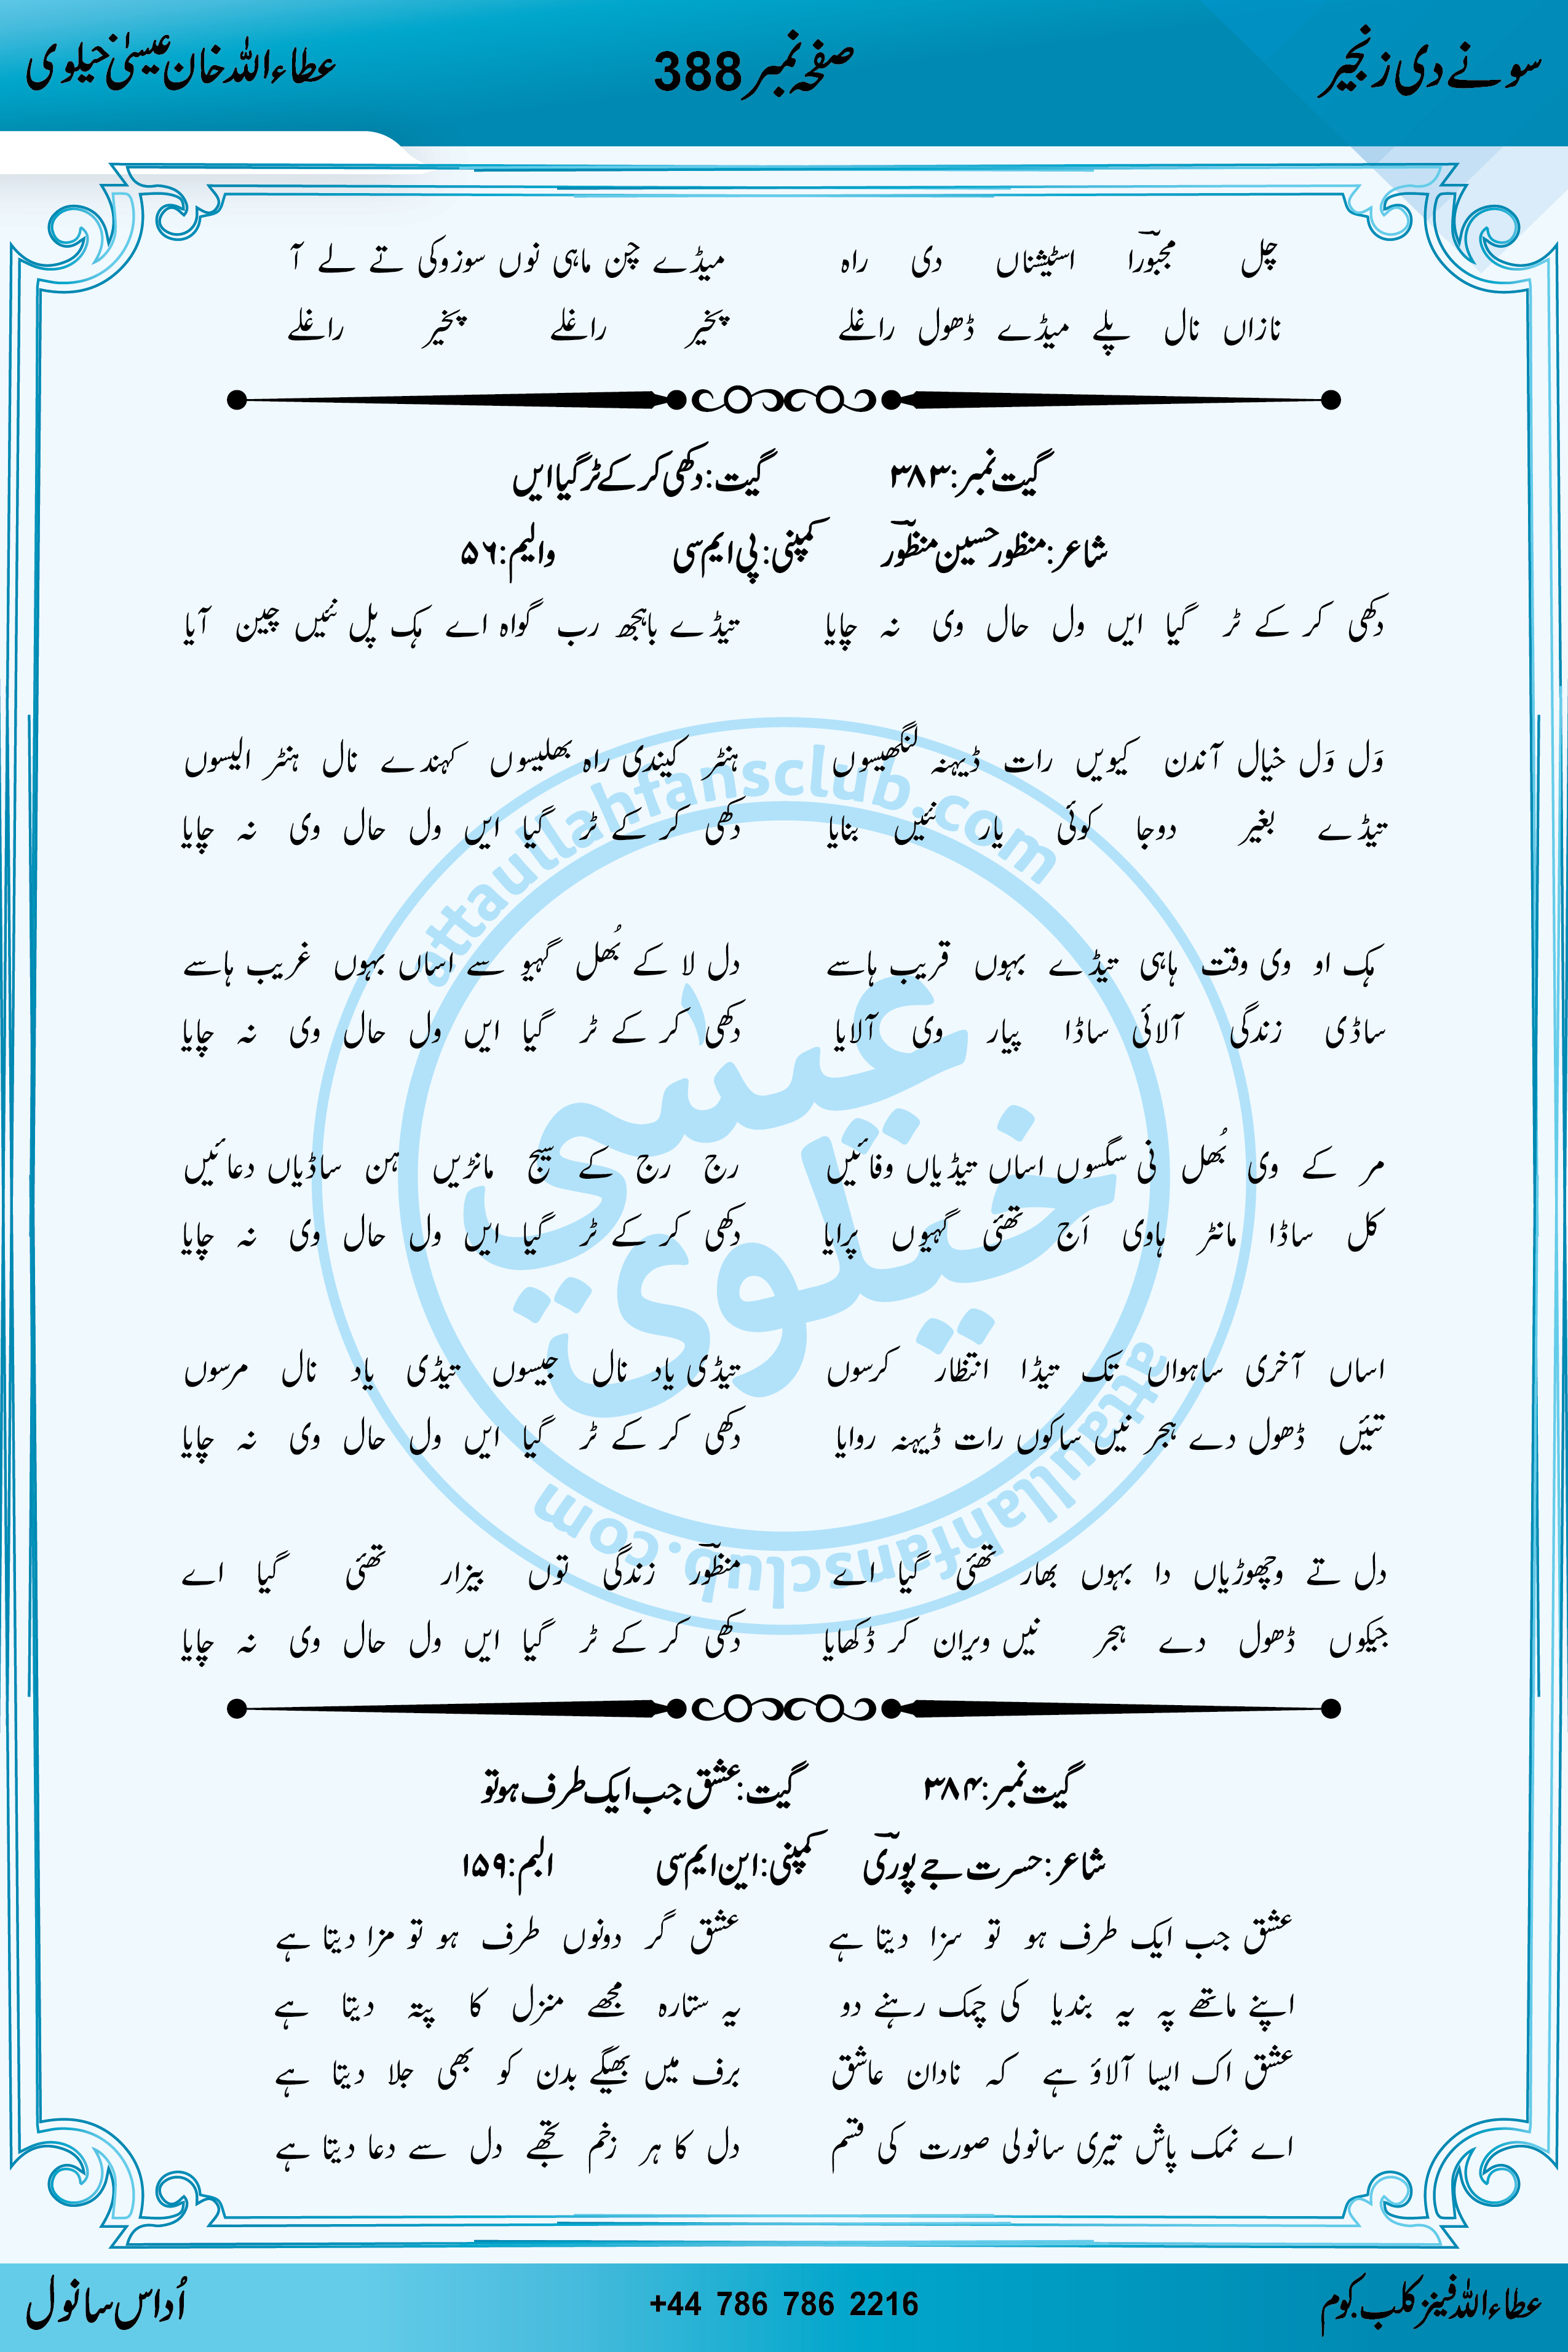 سونے دی زنجیر صفحہ نمبر 388 عطاءاللہ خان عیسیٰ خیلوی
چل مجبورؔا اسٹیشناں دی راہ میڈے چن ماہی نوں سوزوکی تے لے آ
نازاں نال پلے میڈے ڈھول راغلے پخیر راغلے پخیر راغلے
گیت نمبر:۳۸۳ گیت:دکھی کر کے ٹر گیا ایں
شاعر:منظور حسین منظورؔ کمپنی:پی ایم سی والیم:۵۶
دکھی کر کے ٹر گیا ایں ول حال وی نہ چایا تیڈے باہجھ رب گواہ اے ہک پل نئیں چین آیا
وَل وَل خیال آندن کیویں رات ڈیہنہ لنگھیسوں ہنٹر کیندی راہ بھلیسوں کہندے نال ہنٹر الیسوں
تیڈے بغیر دوجا کوئی یار نئیں بنایا دکھی کر کے ٹر گیا ایں ول حال وی نہ چایا
ہک او وی وقت ہاہی تیڈے بہوں قریب ہاسے دل لا کے بُھل گہیو سے اساں بہوں غریب ہاسے
ساڈی زندگی آلائی ساڈا پیار وی آلایا دکھی کر کے ٹر گیا ایں ول حال وی نہ چایا
مر کے وی بُھل نی سگسوں اساں تیڈیاں وفائیں رج رج کے سیج مانڑیں ہن ساڈیاں دعائیں
کل ساڈا مانٹر ہاوی اَج تھئی گہیوں پرایا دکھی کر کے ٹر گیا ایں ول حال وی نہ چایا
اساں آخری ساہواں تک تیڈا انتظار کرسوں تیڈی یاد نال جیسوں تیڈی یاد نال مرسوں
تئیں ڈھول دے ہجر نیں ساکوں رات ڈیہنہ روایا دکھی کر کے ٹر گیا ایں ول حال وی نہ چایا
دل تے وچھوڑیاں دا بہوں بھار تھئی گیا اے منظورؔ زندگی توں بیزار تھئی گیا اے
جیکوں ڈھول دے ہجر نیں ویران کر ڈکھایا دکھی کر کے ٹر گیا ایں ول حال وی نہ چایا
گیت نمبر:۳۸۴ گیت:عشق جب ایک طرف ہو تو
شاعر:حسرت جے پوریؔ کمپنی:این ایم سی البم:۱۵۹
عشق جب ایک طرف ہو تو سزا دیتا ہے عشق گر دونوں طرف ہو تو مزا دیتا ہے
اپنے ماتھے پہ یہ بندیا کی چمک رہنے دو یہ ستارہ مجھے منزل کا پتہ دیتا ہے
عشق اک ایسا آلاؤ ہے کہ نادان عاشق برف میں بھیگے بدن کو بھی جلا دیتا ہے
اے نمک پاش تیری سانولی صورت کی قسم دل کا ہر زخم تجھے دل سے دعا دیتا ہے
attaullahfansclub.com
عیسٰی
خیلوی
attaullahfansclub.com
عطاءاللہ فینز کلب.کوم +44 786 786 2216 اُداس سانول